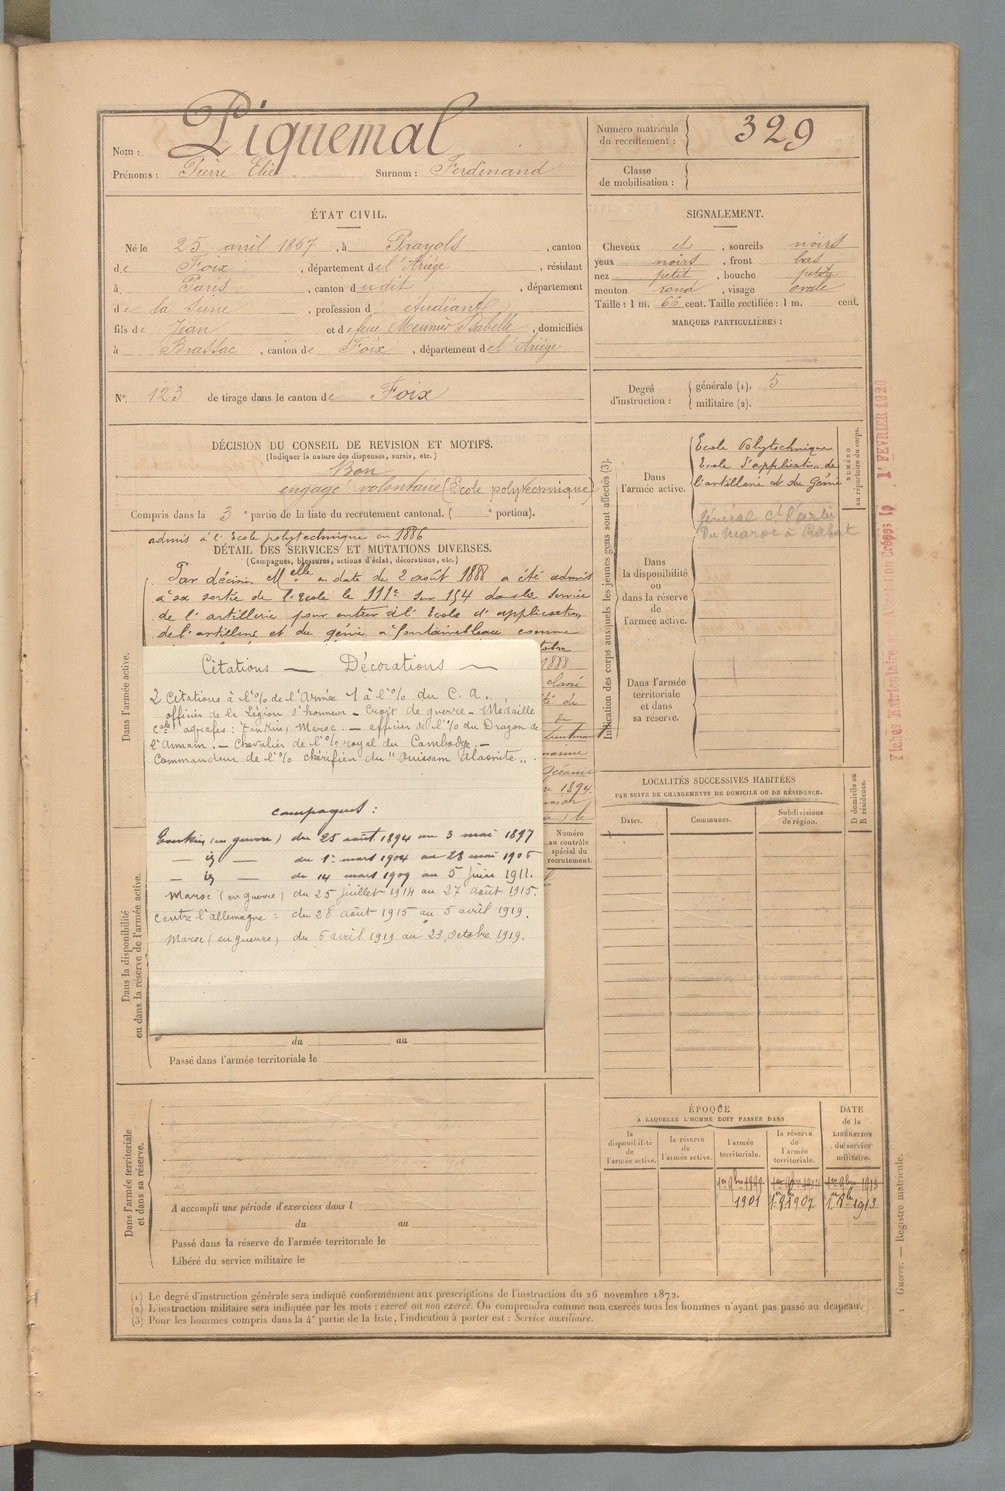 Nom : Piquemal
Prénoms : Pierre Elie Surnom : Ferdinand
Numéro matricule du recrutement : 329
Classe de mobilisation :
ÉTAT CIVIL.
Né le 25 avril 1867, à Prayols, canton
de Foix, département de l'Ariège, résidant
à Paris, canton dudit, département
de la Seine, profession d'étudiant
fils de Jean et de feue Meunier Isabelle, domiciliés
à Brassac, canton de Foix, département de l'Ariège
N° 123 de tirage dans le canton de Foix
SIGNALEMENT.
Cheveux et, sourcils noirs
yeux noirs, front bas
nez petit, bouche petite
menton rond, visage ovale
Taille : 1 m. 66 cent. Taille rectifiée : 1 m. cent.
MARQUES PARTICULIÈRES :
Degré d'instruction :
générale (1). 5
militaire (2).
DÉCISION DU CONSEIL DE REVISION ET MOTIFS.
(Indiquer la nature des dispenses, sursis, etc.)
Bon
engagé volontaire (Ecole polytechnique)
Compris dans la 3e partie de la liste du recrutement cantonal. ( e portion).
admis à l'Ecole polytechnique en 1886
DÉTAIL DES SERVICES ET MUTATIONS DIVERSES.
(Campagnes, blessures, actions d'éclat, décorations, etc.)
Par décision Melle en date du 2 août 1888 a été admis
à sa sortie de l'Ecole le 111e sur 154 dans le service
de l'artillerie pour entrer à l'Ecole d'application
de l'artillerie et du génie à Fontainebleau comme
Dans l'armée active.
Citations — Décorations —
2 Citations à l'% de l'Armée 1 à l'% du C. A.
officier de la Légion d'honneur — Croix de guerre — Médaille
Cale agrafes : Tonkin, Maroc. — officier de l'% du Dragon de
l'Annam. — Chevalier de l'% royal du Cambodge. —
Commandeur de l'% chérifien du "Ouissam Alaouite".
campagnes :
Tonkin (en guerre) du 25 août 1894 au 3 mai 1897
— id — du 1er mars 1904 au 28 mai 1906
— id — du 14 mars 1909 au 5 juin 1911.
Maroc (en guerre) du 25 juillet 1914 au 27 août 1915.
contre l'allemagne : du 28 août 1915 au 5 avril 1919.
Maroc (en guerre) du 6 avril 1919 au 23 octobre 1919.
1888
1894.
Numéro au contrôle spécial du recrutement.
Dans la disponibilité ou dans la réserve de l'armée active.
du au
Passé dans l'armée territoriale le
Dans l'armée territoriale et dans sa réserve.
A accompli une période d'exercices dans l
du au
Passé dans la réserve de l'armée territoriale le
Libéré du service militaire le
Indication des corps auxquels les jeunes gens sont affectés (3).
NUMÉRO au répertoire du corps.
Dans l'armée active.
Ecole Polytechnique
Ecole d'application de
l'artillerie et du Génie
Général Ct l'artie
du Maroc à Rabat
Dans la disponibilité ou dans la réserve de l'armée active.
Dans l'armée territoriale et dans sa réserve.
LOCALITÉS SUCCESSIVES HABITÉES
PAR SUITE DE CHANGEMENTS DE DOMICILE OU DE RÉSIDENCE.
Dates. Communes. Subdivisions de région.
D domicile ou R résidence.
ÉPOQUE
À LAQUELLE L'HOMME DOIT PASSER DANS
DATE de la LIBÉRATION du service militaire.
la disponibilité de l'armée active.
la réserve de l'armée active.
l'armée territoriale.
la réserve de l'armée territoriale.
1901 1907 1913
(1) Le degré d'instruction générale sera indiqué conformément aux prescriptions de l'instruction du 26 novembre 1872.
(2) L'instruction militaire sera indiquée par les mots : exercé ou non exercé. On comprendra comme non exercés tous les hommes n'ayant pas passé au drapeau.
(3) Pour les hommes compris dans la 4e partie de la liste, l'indication à porter est : Service auxiliaire.
Guerre. — Registre matricule.
1er FEVRIER 1920